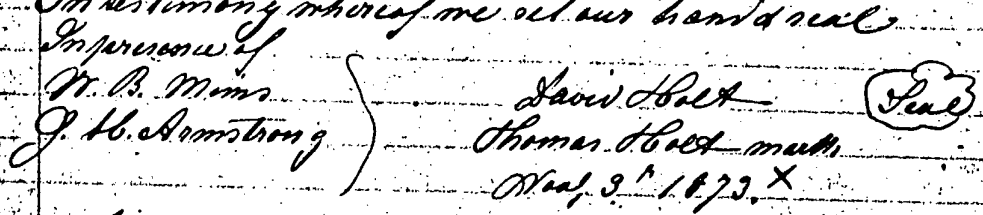 In testimony whereof we set our hand & seal
In presence of
W. B. Mims
J. H. Armstrong
David Holt Seal
Thomas Holt mark
Nov, 3rd 1873. X